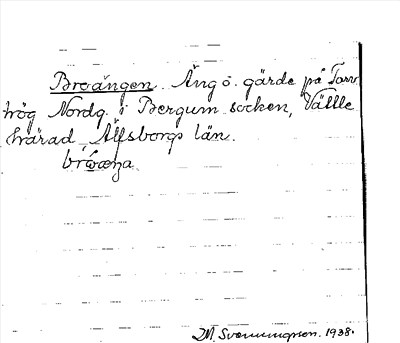 Broängen. Äng o. gärde på Torv
hög Nordg. i Bergum socken, Vättle
härad Älfsborgs län.
M. Svenningson. 1938.